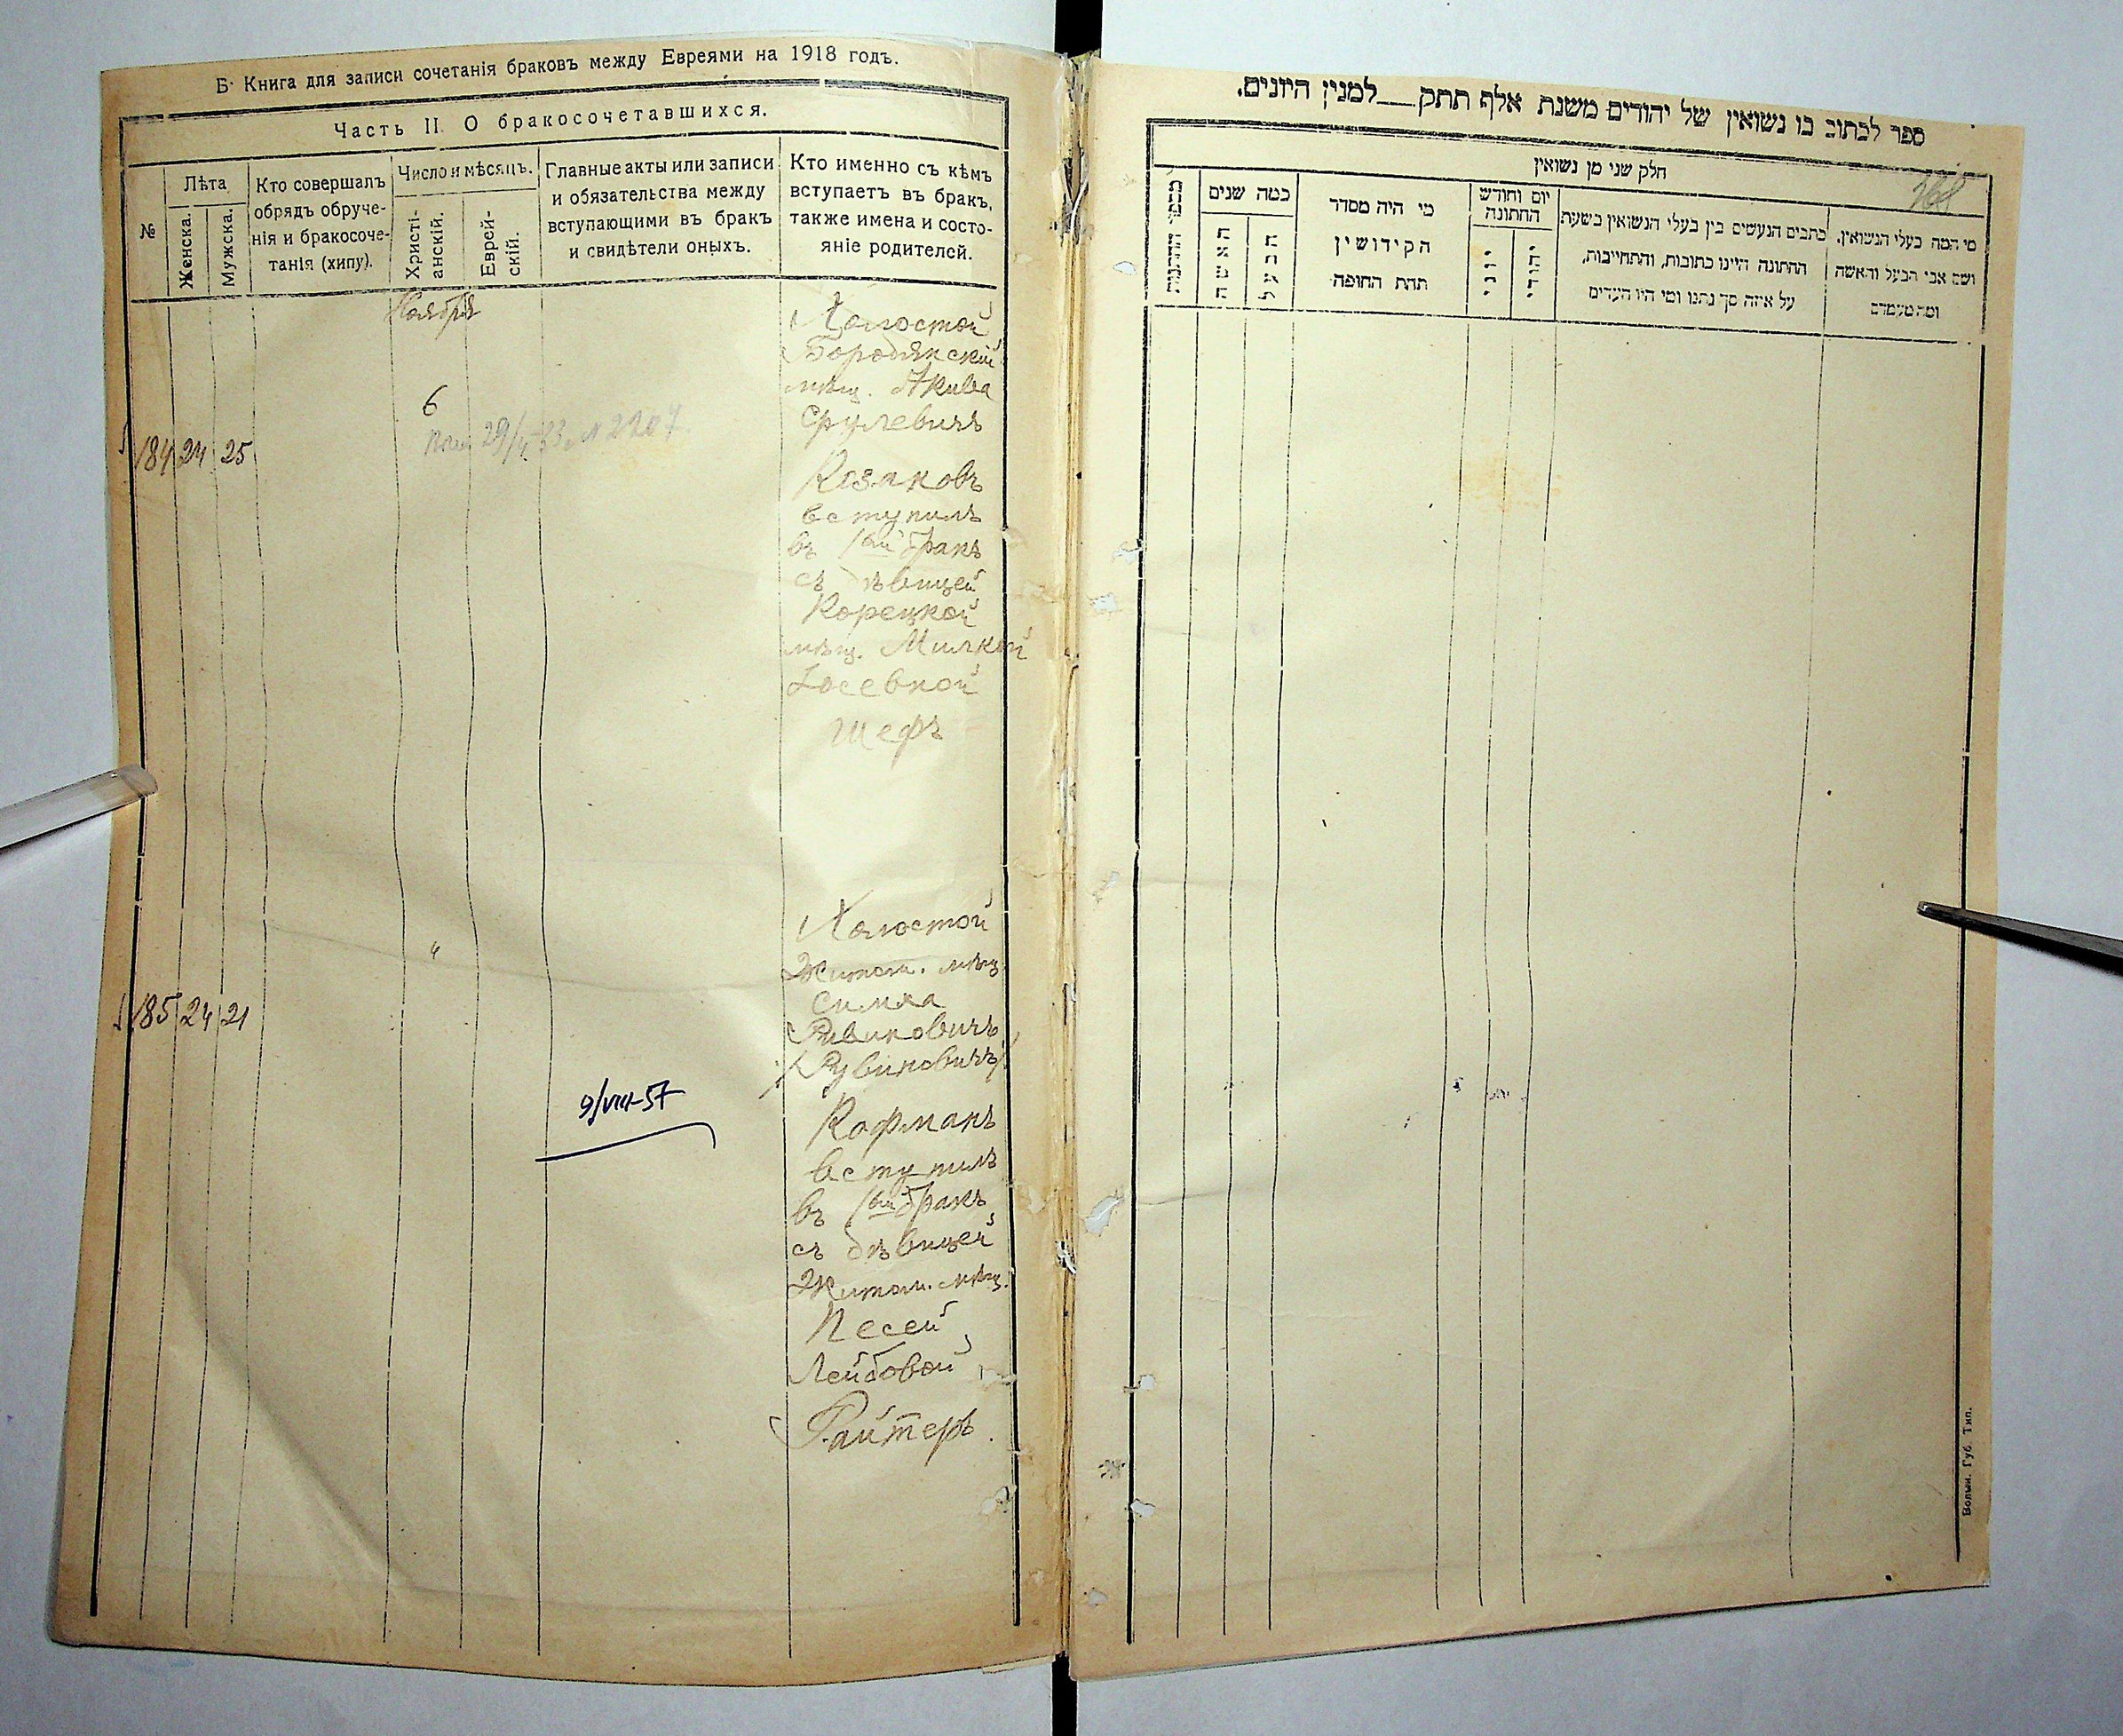 Б. Книга для записи сочетанія браковъ между Евреями на 1918 годъ.
Часть II. О бракосочетавшихся.
№
Лѣта
Женска.
Мужска.
Кто совершалъ
обрядъ обруче-
нія и бракосоче-
танія (хипу).
Число и мѣсяцъ.
Христі-
анскій.
Еврей-
скій.
Главные акты или записи
и обязательства между
вступающими въ бракъ
и свидѣтели оныхъ.
Кто именно съ кѣмъ
вступаетъ въ бракъ,
также имена и состо-
яніе родителей.
Ноября
6
184 24 25
Холостой
Бородянскій
мѣщ. Акива
Срулевичъ
Козаковъ
вступилъ
въ 1ый бракъ
съ дѣвицей
Корецкой
мѣщ. Милкой
Іосевной
Шефъ
185 24 21
"
9/VIII-57
Холостой
Житом. мѣщ.
Симха
Ривиновичъ
(Рувиновичъ)
Кофманъ
вступилъ
въ 1ый бракъ
съ дѣвицей
Житом. мѣщ.
Песей
Лейбовой
Райтеръ.
ספר לכתוב בו נשואין של יהודים משנת אלף תתק___למנין היונים.
חלק שני מן נשואין
כמה שנים
האשה
הבעל
מי היה מסדר
הקידושין
תחת החופה
יום וחודש
החתונה
יוני
יהודי
כתבים הנעשים בין בעלי הנשואין בשעת
החתונה היינו כתובות, והתחייבות,
על איזה סך נתנו ומי היו העדים
מי המה בעלי הנשואין,
ושם אבי הבעל והאשה
ומה מעמדם
Волын. Губ. Тип.